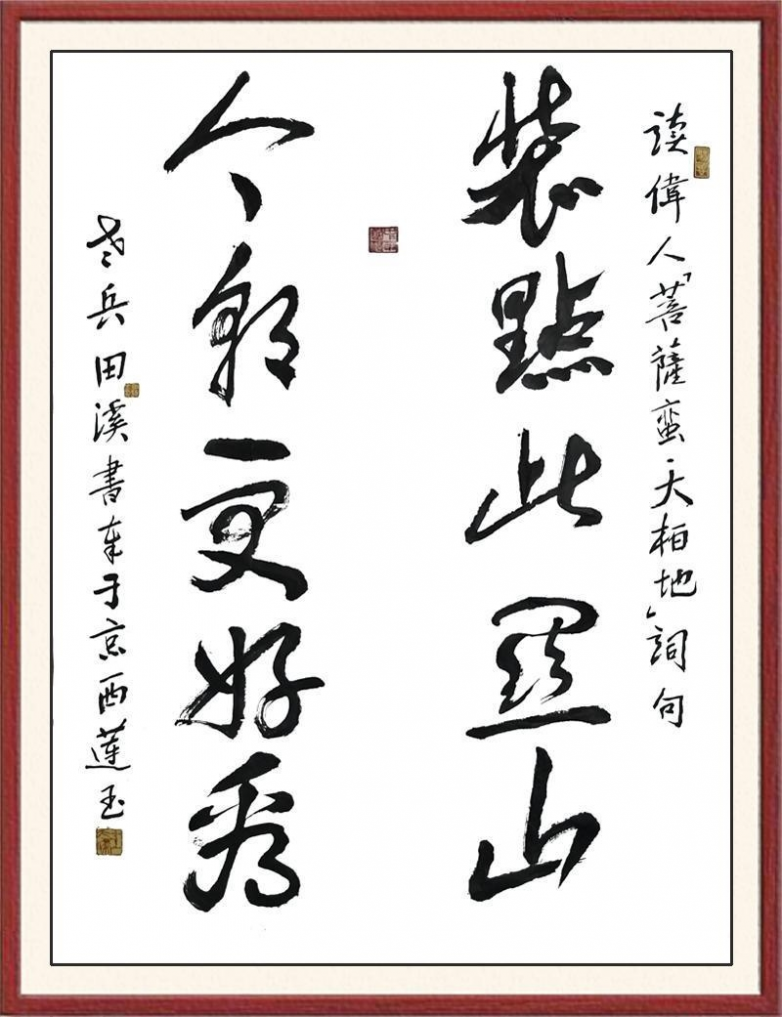 读偉人「菩薩蛮·大柏地」詞句
裝點此關山
今朝更好看
老兵田溪書奉于京西蓮玉